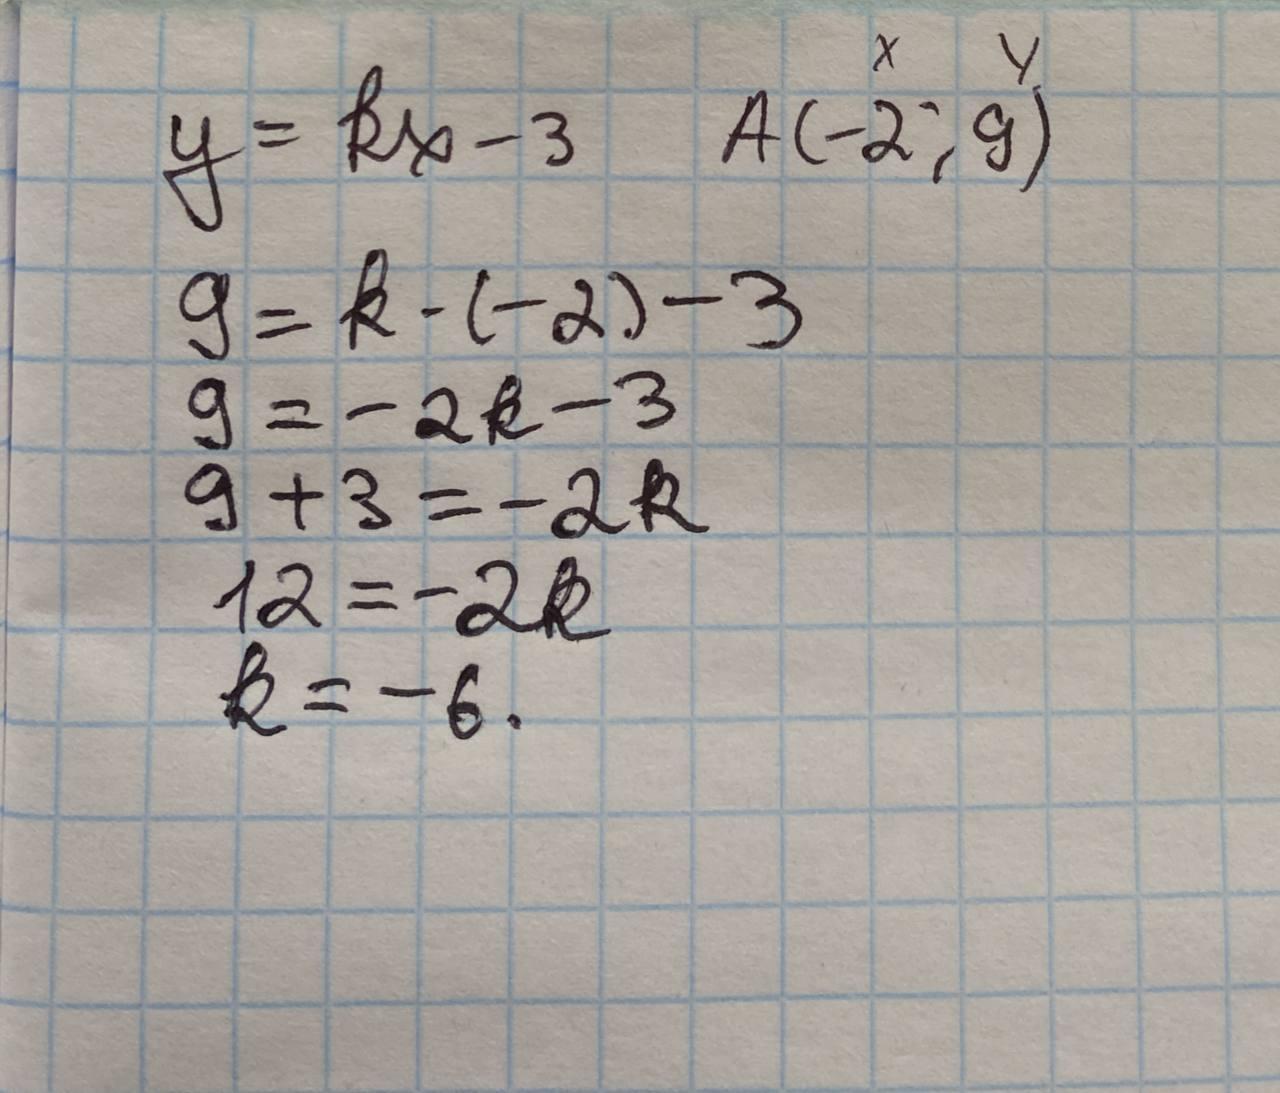 x y
y = kx - 3 A(-2; 9)
9 = k · (-2) - 3
9 = -2k - 3
9 + 3 = -2k
12 = -2k
k = -6.